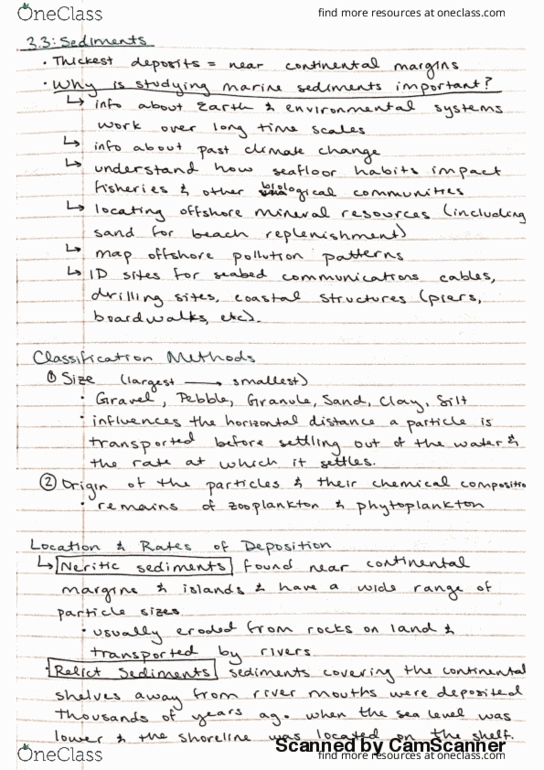 OneClass
find more resources at oneclass.com
3.3: Sediments
• Thickest deposits = near continental margins
• Why is studying marine sediments important?
↳ info about Earth & environmental systems
work over long time scales
↳ info about past climate change
↳ understand how seafloor habits impact
fisheries & other biological communities
↳ locating offshore mineral resources (including
sand for beach replenishment)
↳ map offshore pollution patterns
↳ ID sites for seabed communications cables,
drilling sites, coastal structures (piers,
boardwalks, etc).
Classification Methods
① Size (largest → smallest)
• Gravel, Pebble, Granule, Sand, Clay, Silt
• influences the horizontal distance a particle is
transported before settling out of the water &
the rate at which it settles.
② Origin of the particles & their chemical compositio
• remains of zooplankton & phytoplankton
Location & Rates of Deposition
↳ Neritic sediments found near continental
margins & islands & have a wide range of
particle sizes
• usually eroded from rocks on land &
transported by rivers
• Relict Sediments sediments covering the continental
shelves away from river mouths were deposited
thousands of years ago. when the sea level was
lower & the shoreline was located on the shelf.
Scanned by CamScanner
OneClass
find more resources at oneclass.com